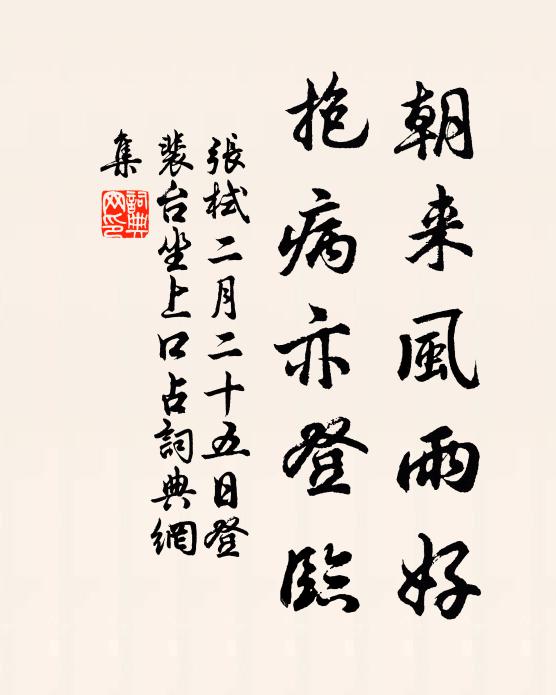 朝来風雨好
抱病亦登臨
張栻二月二十五日登
裴台坐上口占詞典網
集
詞典
网印